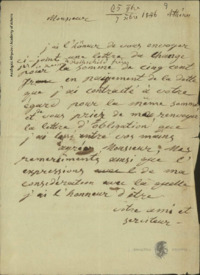 Monsieur
7 1846 Athènes
j'ai l'honneur de vous envoyer
ci joint une lettre de change
pour la somme de cinq cent
en payement de la dette
que j'ai contracté à votre
égard pour la même somme
et vous prier de me renvoyer
la lettre d'obligation que
j'ai entre vos mains
Monsieur Mes
remerciments ainsi que l'
expressions de ma
considération avec laquelle
j'ai l'honneur d'être
votre ami et
serviteur